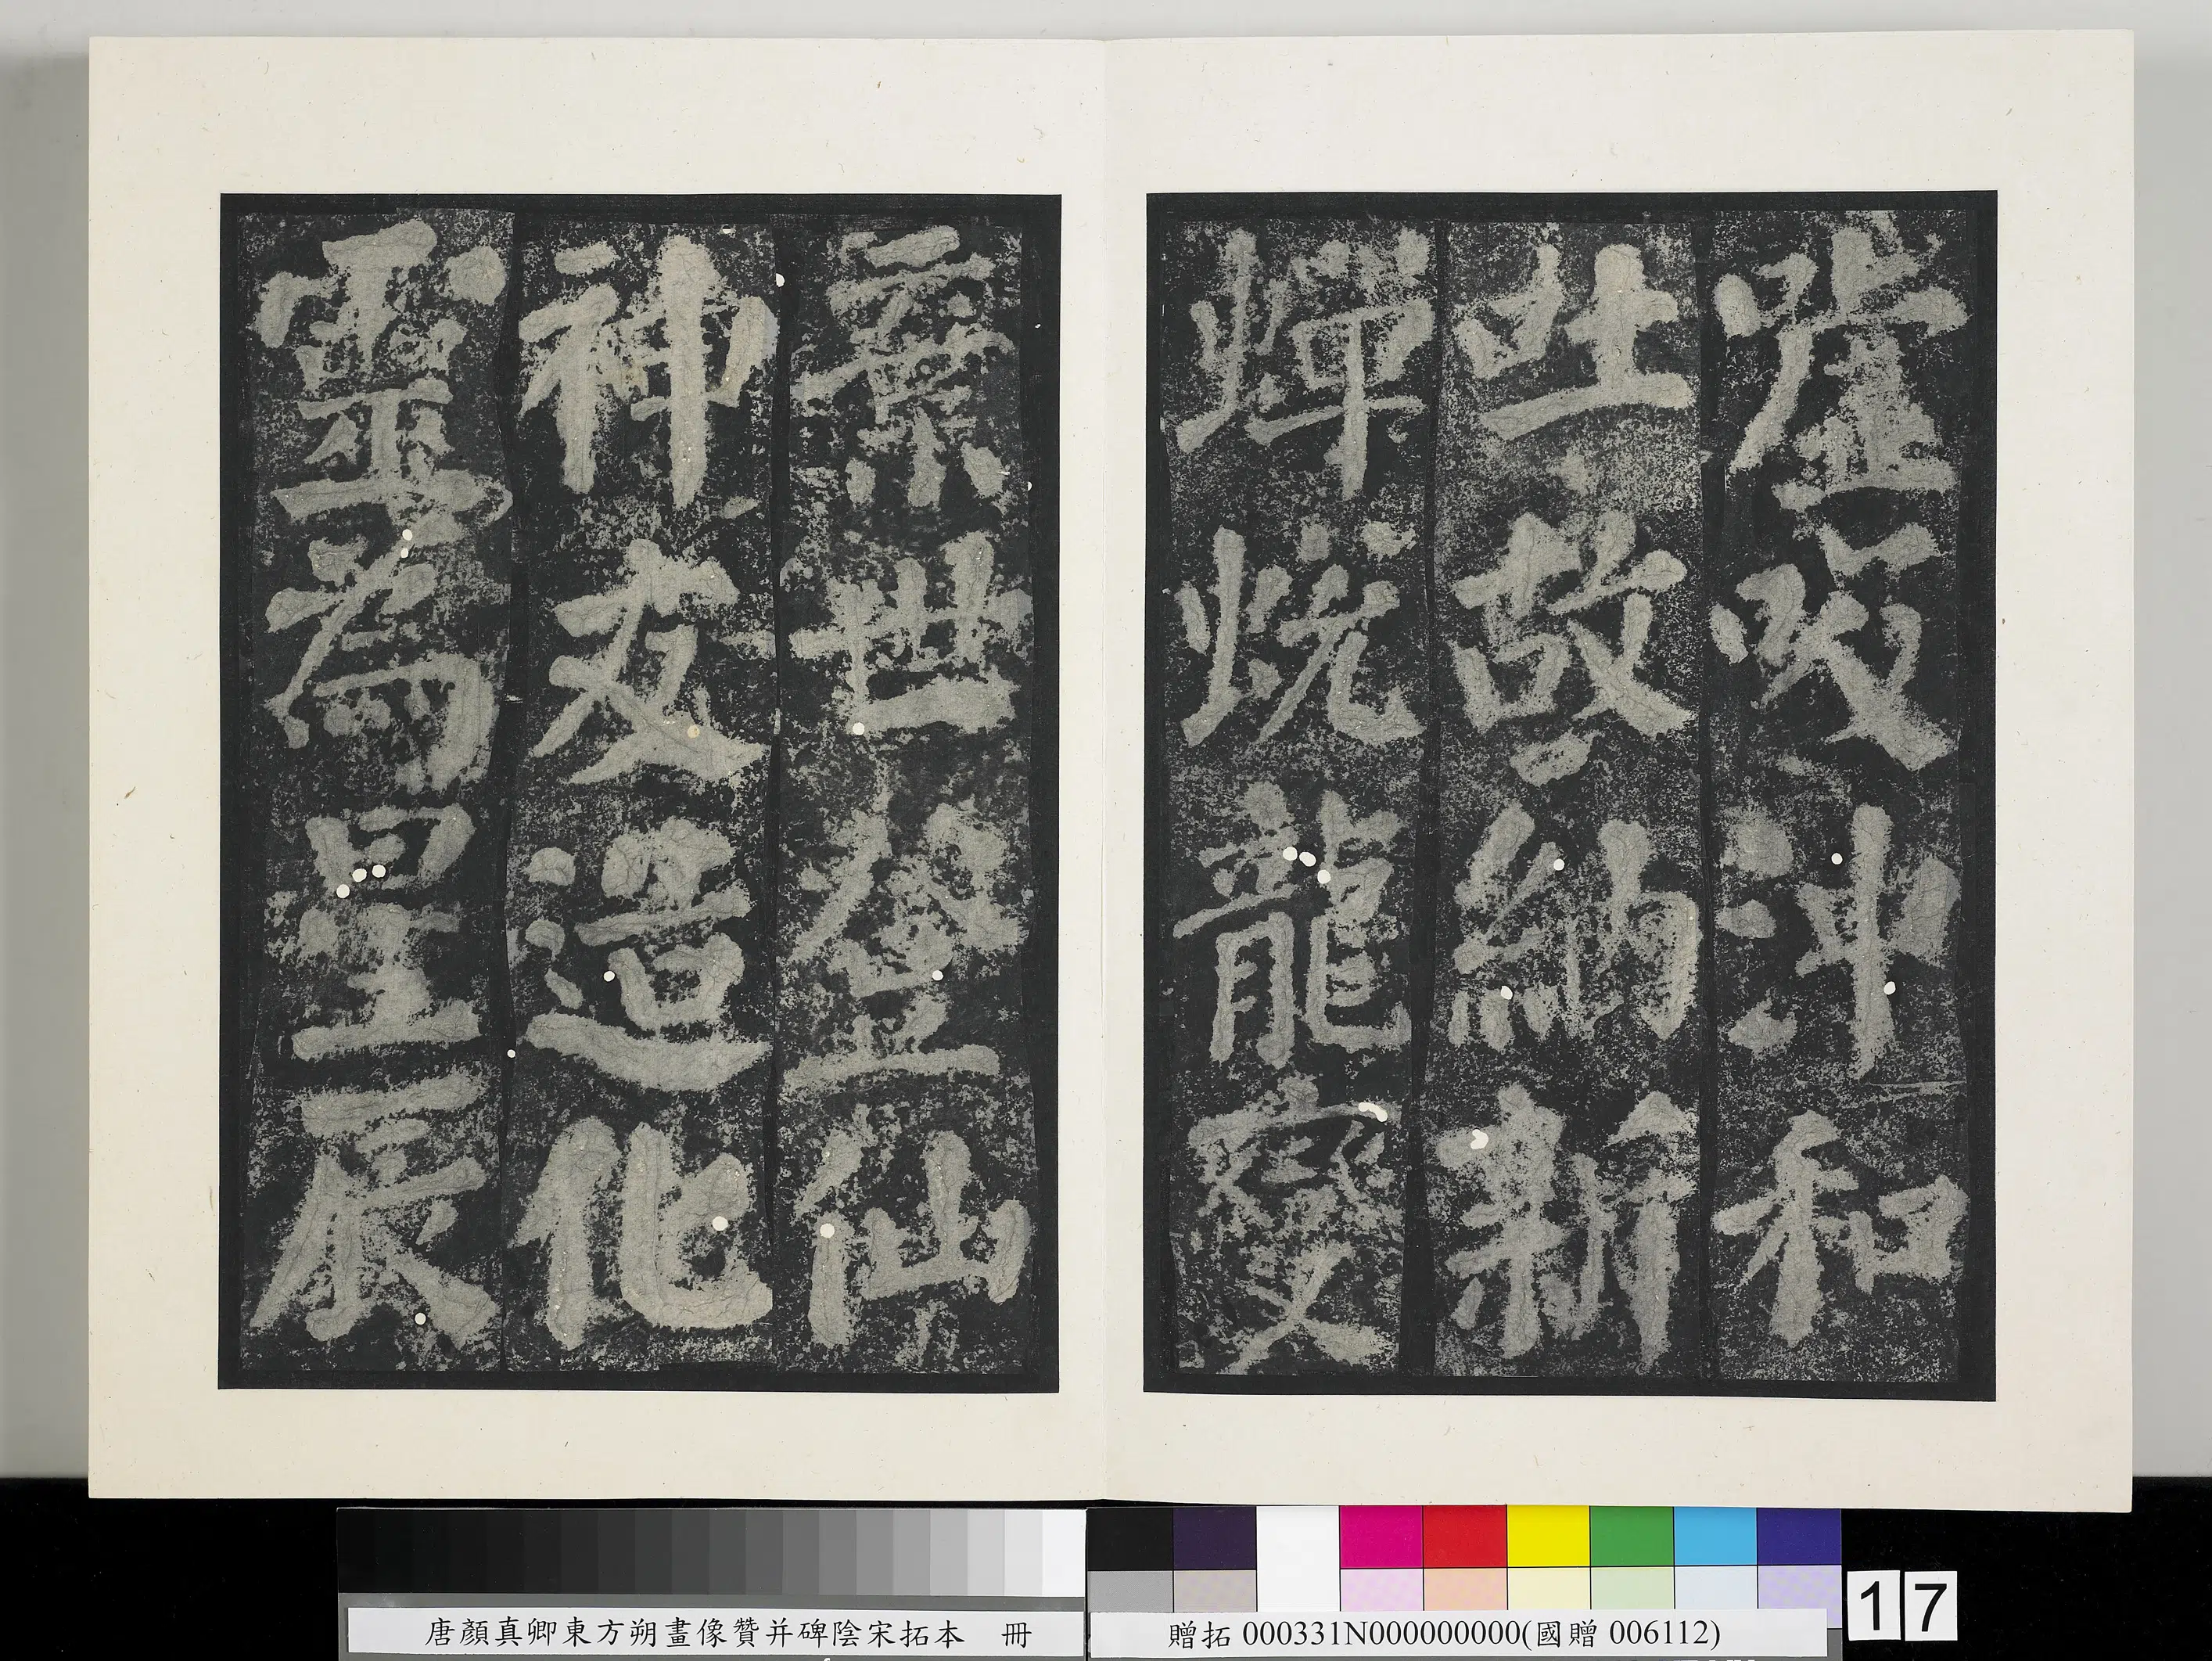 嘘吸沖和
吐故納新
蟬蛻龍變
棄世登仙
神友造化
靈為星辰
唐顏真卿東方朔畫像贊并碑陰宋拓本 冊
贈拓 000331N000000000(國贈 006112)
17